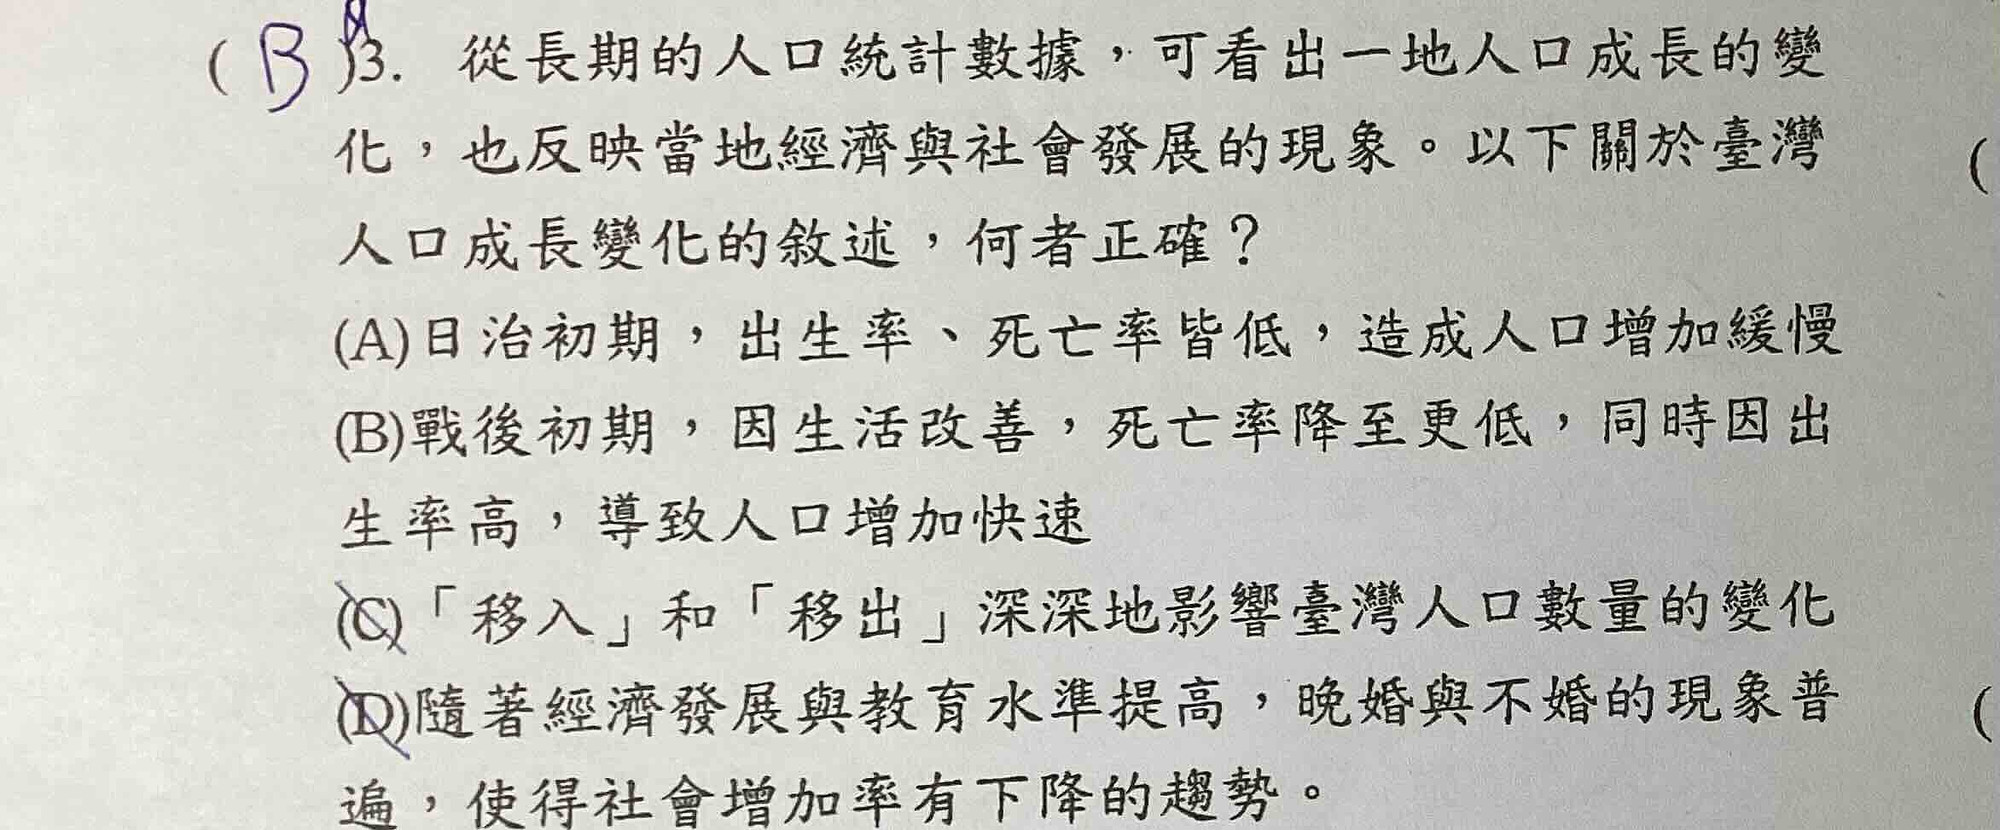 ( B )3. 從長期的人口統計數據，可看出一地人口成長的變
化，也反映當地經濟與社會發展的現象。以下關於臺灣
人口成長變化的敘述，何者正確？
(A)日治初期，出生率、死亡率皆低，造成人口增加緩慢
(B)戰後初期，因生活改善，死亡率降至更低，同時因出
生率高，導致人口增加快速
(C)「移入」和「移出」深深地影響臺灣人口數量的變化
(D)隨著經濟發展與教育水準提高，晚婚與不婚的現象普
遍，使得社會增加率有下降的趨勢。
(
(